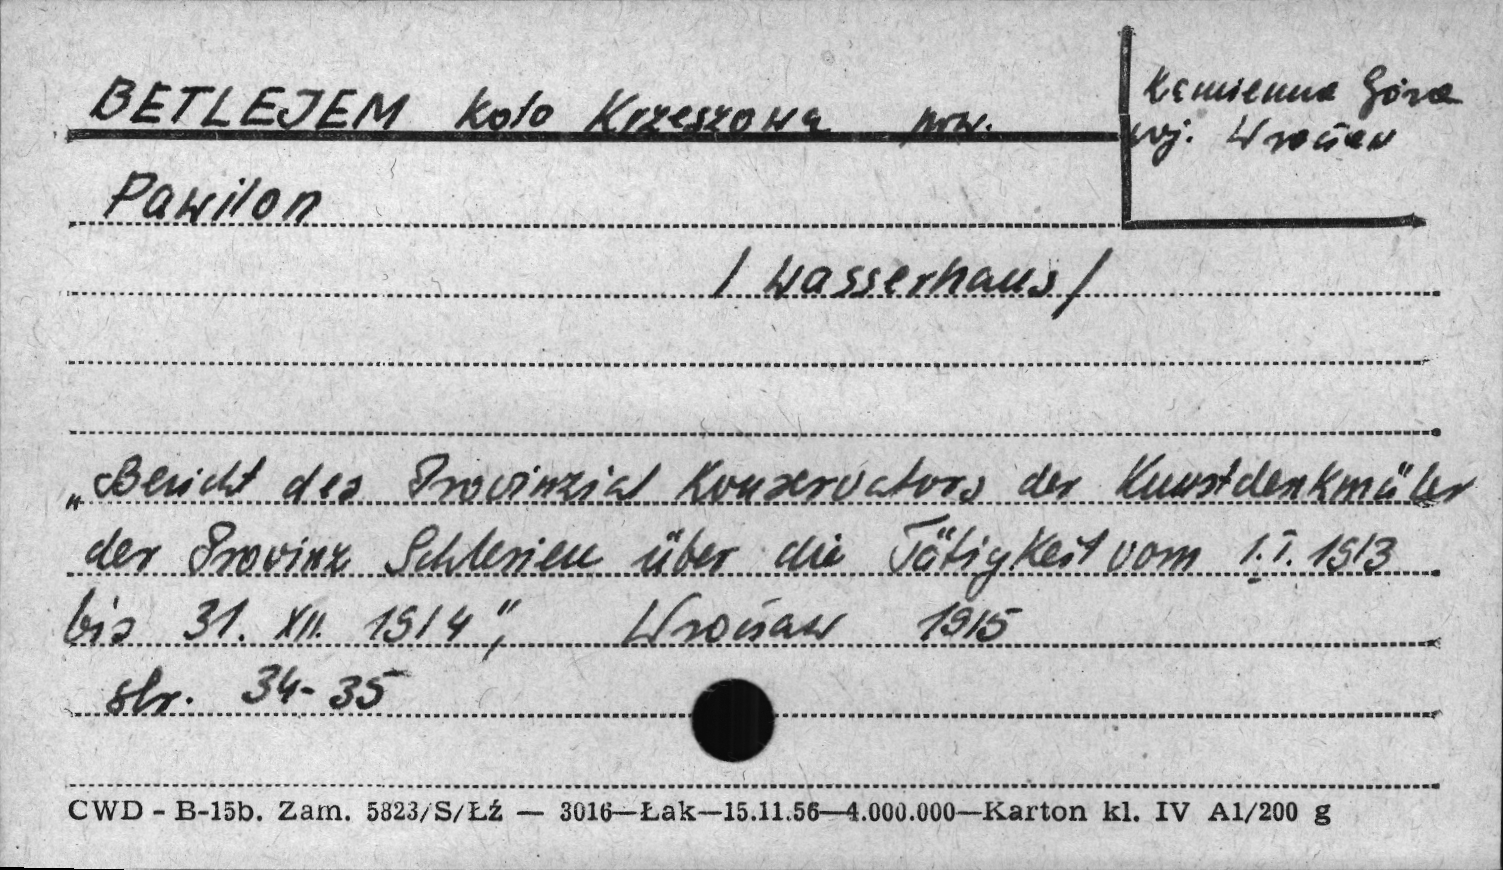 BETLEJEM koło Krzeszowa pow. Kamienna Góra
woj. Wrocław
Pawilon
/ Wasserhaus /
„Bericht des Provinzial Konservators der Kunstdenkmäler
der Provinz Schlesien über die Tätigkeit vom 1.I.1913
bis 31. XII. 1914", Wrocław 1915
str. 34-35
CWD - B-15b. Zam. 5823/S/Łź — 3016—Łak—15.11.56—4.000.000—Karton kl. IV A1/200 g